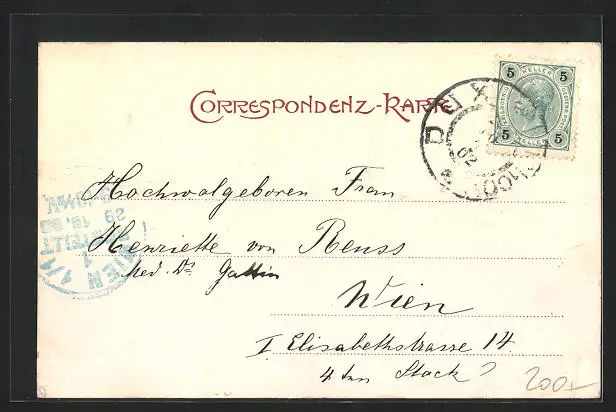 CORRESPONDENZ-KARTE
DUX
5 HELLER 5
5 HELLER 5
02
Hochwolgeboren Frau
Henriette von Reuss
Med. Drs Gattin
Wien
I Elisabethstrasse 14
4ten Stock
WIEN 1/1
200.-